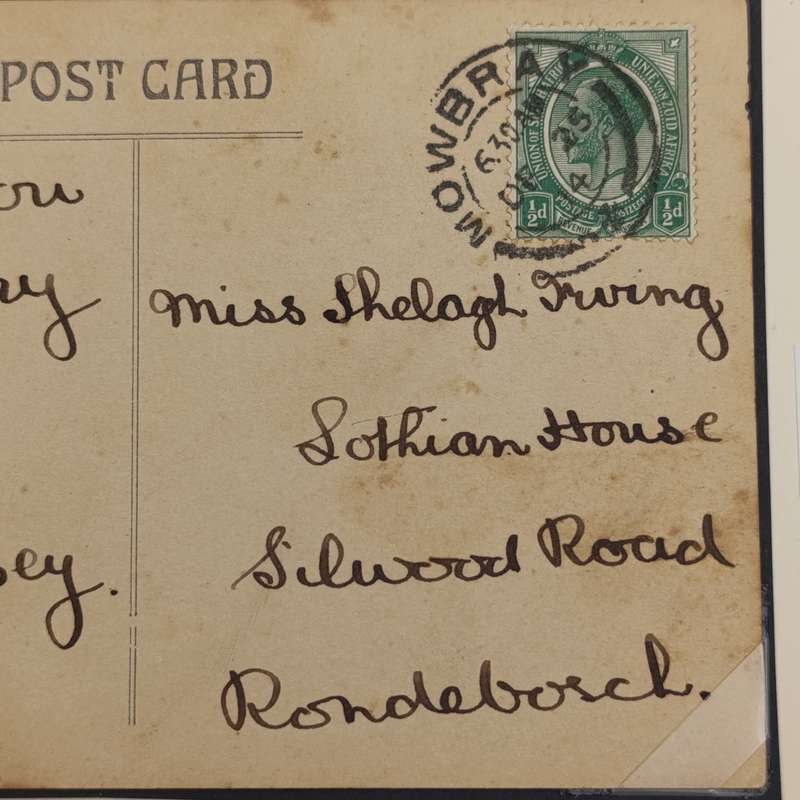 POST CARD
MOWBRAY
630 AM
DE 25
UNION OF SOUTH AFRICA
UNIE VAN ZUID AFRIKA
POSTAGE
REVENUE
½d
½d
Miss Shelagh Irving
Lothian House
Silwood Road
Rondebosch.